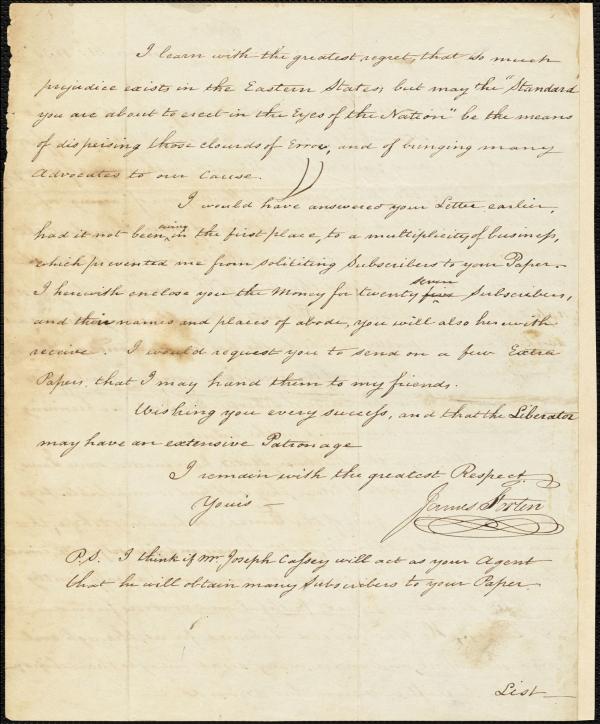 I learn with the greatest regret, that so much
prejudice exists in the Eastern States, but may the "Standard
you are about to erect in the Eyes of the Nation" be the means
of dispersing those clouds of Error, and of bringing many
Advocates to our Cause.
I would have answered your Letter earlier,
had it not been owing in the first place, to a multiplicity of business,
which prevented me from soliciting Subscribers to your Paper.
I herewith enclose you the Money for twenty seven five Subscribers,
and their names and places of abode, you will also herewith
receive. I would request you to send on a few Extra
Papers, that I may hand them to my friends.
Wishing you every success, and that the Liberator
may have an extensive Patronage
I remain with the greatest Respect
Yours —
James Forten
P.S. I think if Mr Joseph Cassey will act as your Agent
that he will obtain many Subscribers to your Paper
List —